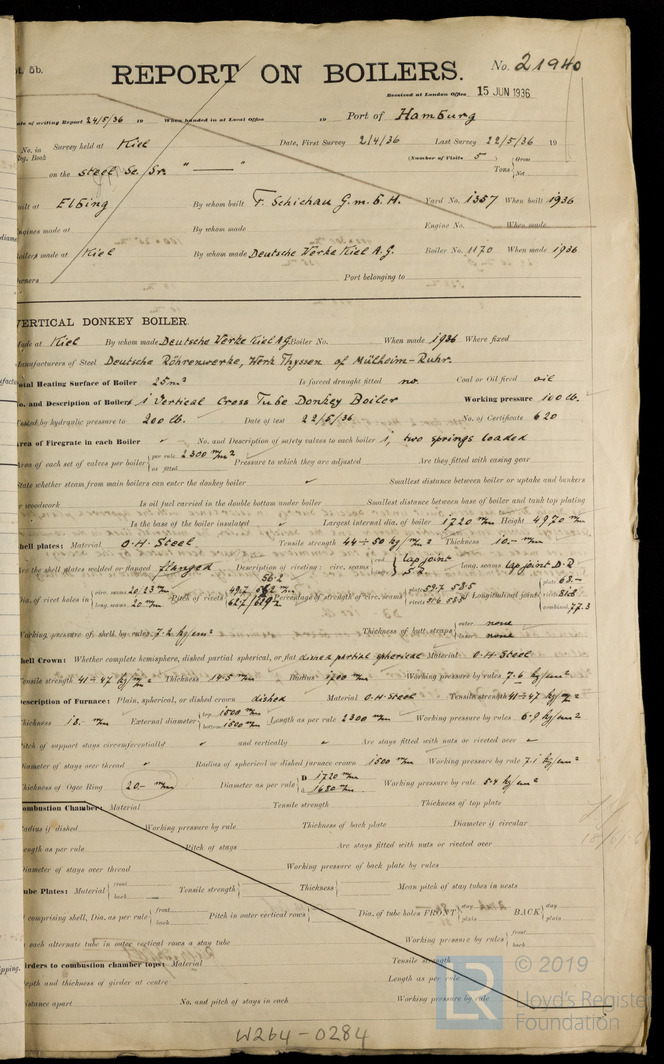 5b.
No. 21940
REPORT ON BOILERS.
Received at London Office 15 JUN 1936
Date of writing Report 24/5/36 19 When handed in at Local Office 19 Port of Hamburg
No. in Survey held at Kiel Date, First Survey 2/4/36 Last Survey 22/5/36 19
Reg. Book (Number of Visits 5)
on the steel Sc. Sr. " —— " Tons { Gross Net
Built at Elbing By whom built F. Schichau G.m.b.H. Yard No. 1357 When built 1936
Engines made at By whom made Engine No. When made
Boilers made at Kiel By whom made Deutsche Werke Kiel A.G. Boiler No. 1170 When made 1936
Owners Port belonging to
VERTICAL DONKEY BOILER.
Made at Kiel By whom made Deutsche Werke Kiel AG. Boiler No. When made 1936 Where fixed
Manufacturers of Steel Deutsche Röhrenwerke, Werk Thyssen of Mülheim-Ruhr.
Total Heating Surface of Boiler 25 m² Is forced draught fitted no. Coal or Oil fired oil
No. and Description of Boilers 1 Vertical Cross Tube Donkey Boiler Working pressure 100 lb.
Tested by hydraulic pressure to 200 lb. Date of test 22/5/36 No. of Certificate 620
Area of Firegrate in each Boiler No. and Description of safety valves to each boiler 1, two springs loaded
Area of each set of valves per boiler { per rule 2300 m/m² as fitted Pressure to which they are adjusted Are they fitted with easing gear
State whether steam from main boilers can enter the donkey boiler Smallest distance between boiler or uptake and bunkers
or woodwork Is oil fuel carried in the double bottom under boiler Smallest distance between base of boiler and tank top plating
Is the base of the boiler insulated Largest internal dia. of boiler 1720 m/m Height 4970 m/m
Shell plates: Material O.H. Steel Tensile strength 44÷50 kg/m/m² Thickness 10.- m/m
Are the shell plates welded or flanged flanged Description of riveting: circ. seams { end lap joint S.R. long. seams lap joint D.R
Dia. of rivet holes in { circ. seams 20.23 m/m long. seams 20 m/m Pitch of rivets { Percentage of strength of circ. seams { plate rivets Longitudinal joint { plate 68.- rivets combined 77.3
Working pressure of shell by rules 7.2 kg/cm² Thickness of butt straps { outer none inner none
Shell Crown: Whether complete hemisphere, dished partial spherical, or flat dished partial spherical Material O.H. Steel
Tensile strength 41÷47 kg/m/m² Thickness 14.5 m/m Radius 1700 m/m Working pressure by rules 7.6 kg/cm²
Description of Furnace: Plain, spherical, or dished crown dished Material O.H. Steel Tensile strength 41÷47 kg/m/m²
Thickness 18.- m/m External diameter { top 1500 m/m bottom 1500 m/m Length as per rule 2300 m/m Working pressure by rules 6.9 kg/cm²
Pitch of support stays circumferentially and vertically Are stays fitted with nuts or riveted over
Diameter of stays over thread Radius of spherical or dished furnace crown 1500 m/m Working pressure by rule 7.1 kg/cm²
Thickness of Ogee Ring 20.- m/m Diameter as per rule { D 1720 m/m d 1680 m/m Working pressure by rule 8.4 kg/cm²
Combustion Chamber: Material Tensile strength Thickness of top plate
Radius if dished Working pressure by rule Thickness of back plate Diameter if circular
Length as per rule Pitch of stays Are stays fitted with nuts or riveted over
Diameter of stays over thread Working pressure of back plate by rules
Tube Plates: Material { front back Tensile strength { Thickness { Mean pitch of stay tubes in nests
If comprising shell, Dia. as per rule { front back Pitch in outer vertical rows { Dia. of tube holes FRONT { stay plain BACK { stay plain
Is each alternate tube in outer vertical rows a stay tube Working pressure by rules { front back
Girders to combustion chamber tops: Material Tensile strength
Depth and thickness of girder at centre Length as per rule
Distance apart No. and pitch of stays in each Working pressure by rule
W264-0284
LR
© 2019
Lloyd's Register
Foundation